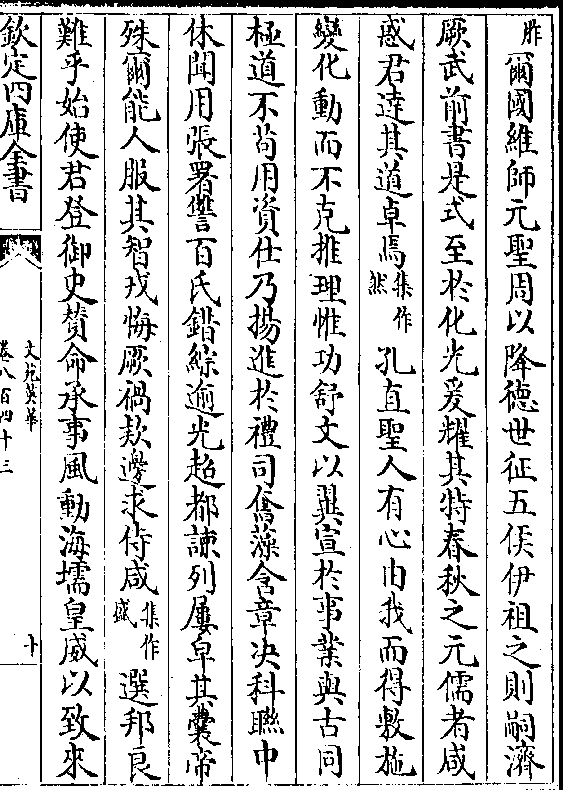 胙爾國維師元聖周以降德世征五侯伊祖之則嗣濟
厥武前書是式至於化光爰耀其特春秋之元儒者咸
惑君達其道卓焉集作然孔直聖人有心由我而得敷施
變化動而不克推理惟功舒文以翼宣於事業與古同
極道不苟用資仕乃揚進於禮司奮藻含章决科聯中
休聞用張署讐百氏錯綜逾光超都諫列屢皁其囊帝
殊爾能人服其智戎悔厥禍欵邊求侍咸集作盛選邦良
難乎始使君登御史贊命承事風動海壖皇威以致來
欽定四庫全書
文苑英華
卷八百四十三
十